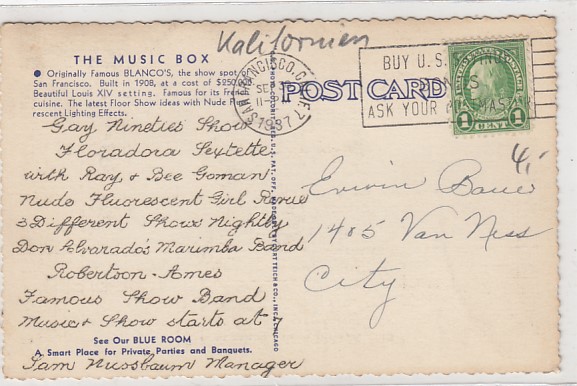 Kalifornien
THE MUSIC BOX
● Originally Famous BLANCO'S, the show spot of
San Francisco. Built in 1908, at a cost of $250,000
Beautiful Louis XIV setting. Famous for its French
cuisine. The latest Floor Show ideas with Nude Fluo-
rescent Lighting Effects.
Gay Nineties Show
Floradora Sextette
with Ray & Bee Goman
Nude Fluorescent Girl Revue
3 Different Shows Nightly
Don Alvarado's Marimba Band
Robertson-Ames
Famous Show Band
Music & Show starts at 7
See Our BLUE ROOM
A Smart Place for Private Parties and Banquets.
Sam Nussbaum Manager
SAN FRANCISCO, CALIF. 7
SEP
1937
BUY U.S.
ASK YOUR POSTMASTER
1 CENT 1
POST CARD
4,-
Erwin Bauer
1485 Van Ness
City